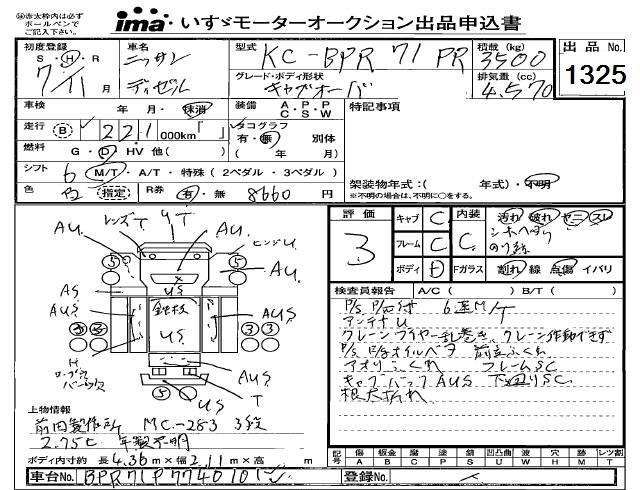 ※赤太枠内は必ず
ボールペンで
ご記入下さい。
ima いすゞモーターオークション出品申込書
初度登録 S・H・R 7/11月
車名 ニッサン ディーゼル
型式 KC-BPR71PR
積載(kg) 3500
グレード・ボディ形状 キャブオーバ
排気量(cc) 4.570
出品No. 1325
車検 年 月・抹消
装備 A・P・P C・S・W
特記事項
走行 B 221,000km「 」
タコグラフ 有・無 別体
燃料 G・D・HV 他( )
( 年 月)
シフト 6 M/T・A/T・特殊(2ペダル・3ペダル)
色 白 指定
R券 有・無 8660円
架装物年式:( 年式)・不明
※不明の場合は、不明に○をする。
レンズT UT
AU. ヒンジU.
5 5
US
AS AUS
鉄板
AUS US AUS
3 3 3 3
H
AUS AUS
T
US
評価 3
キャブ C 内装 C 汚れ 破れ ヤニ スレ
フレーム C
ボディ D Fガラス 割れ 線 点傷 イバリ
検査員報告 A/C( ) B/T( )
6速M/T
アンテナU
クレーンワイヤー乱巻き、クレーン作動できず
アオリふくれ フレームSC
キャブバックAUS 下廻りSC.
上物情報
前田製作所 MC-283 3段
2.75t 年製不明
ボディ内寸約 長4.36m×幅2.11m×高 m
記号 A傷 B板金 C腐 P塗 S錆 U凹凸曲 W波 H穴 M跡 Tレンズ割
車台No. BPR71P7740101
登録No.